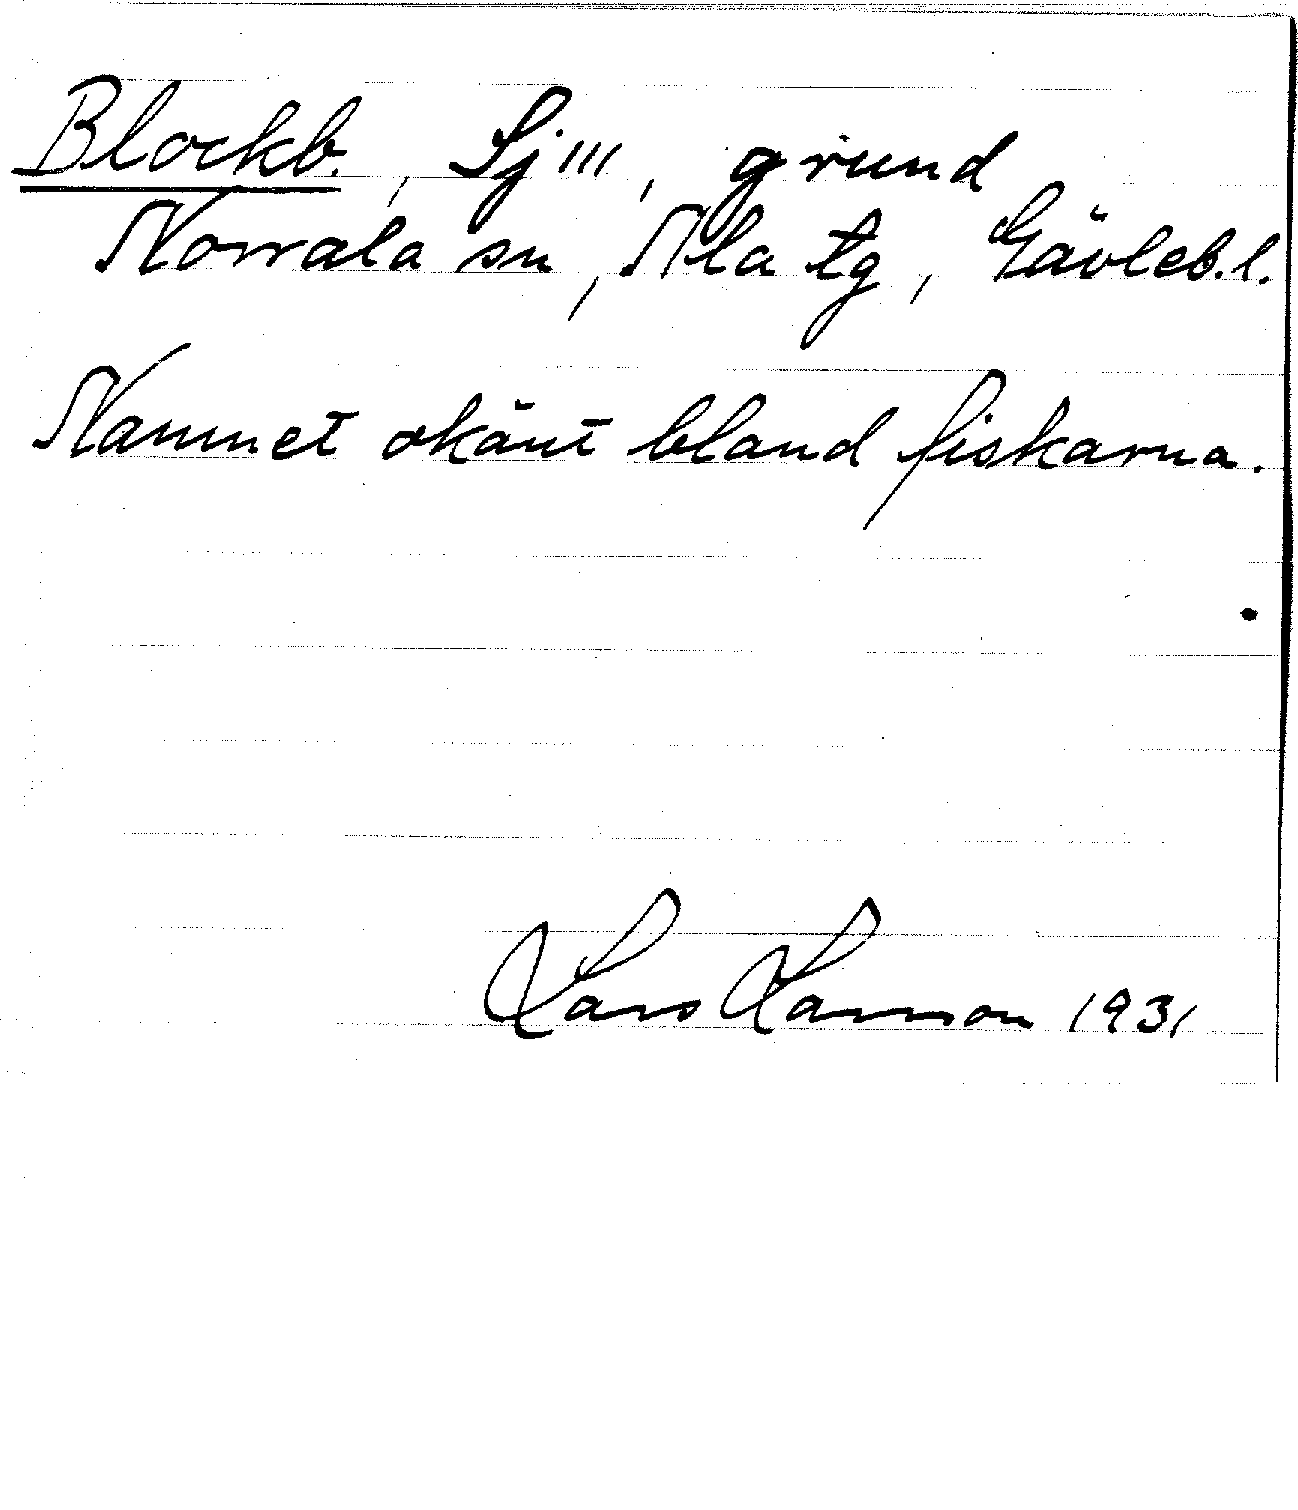 Blockb., Sj''', grund
Norrala sn, Ala tg, Gävleb.l.
Namnet okänt bland fiskarna.
Lars Larsson 1931